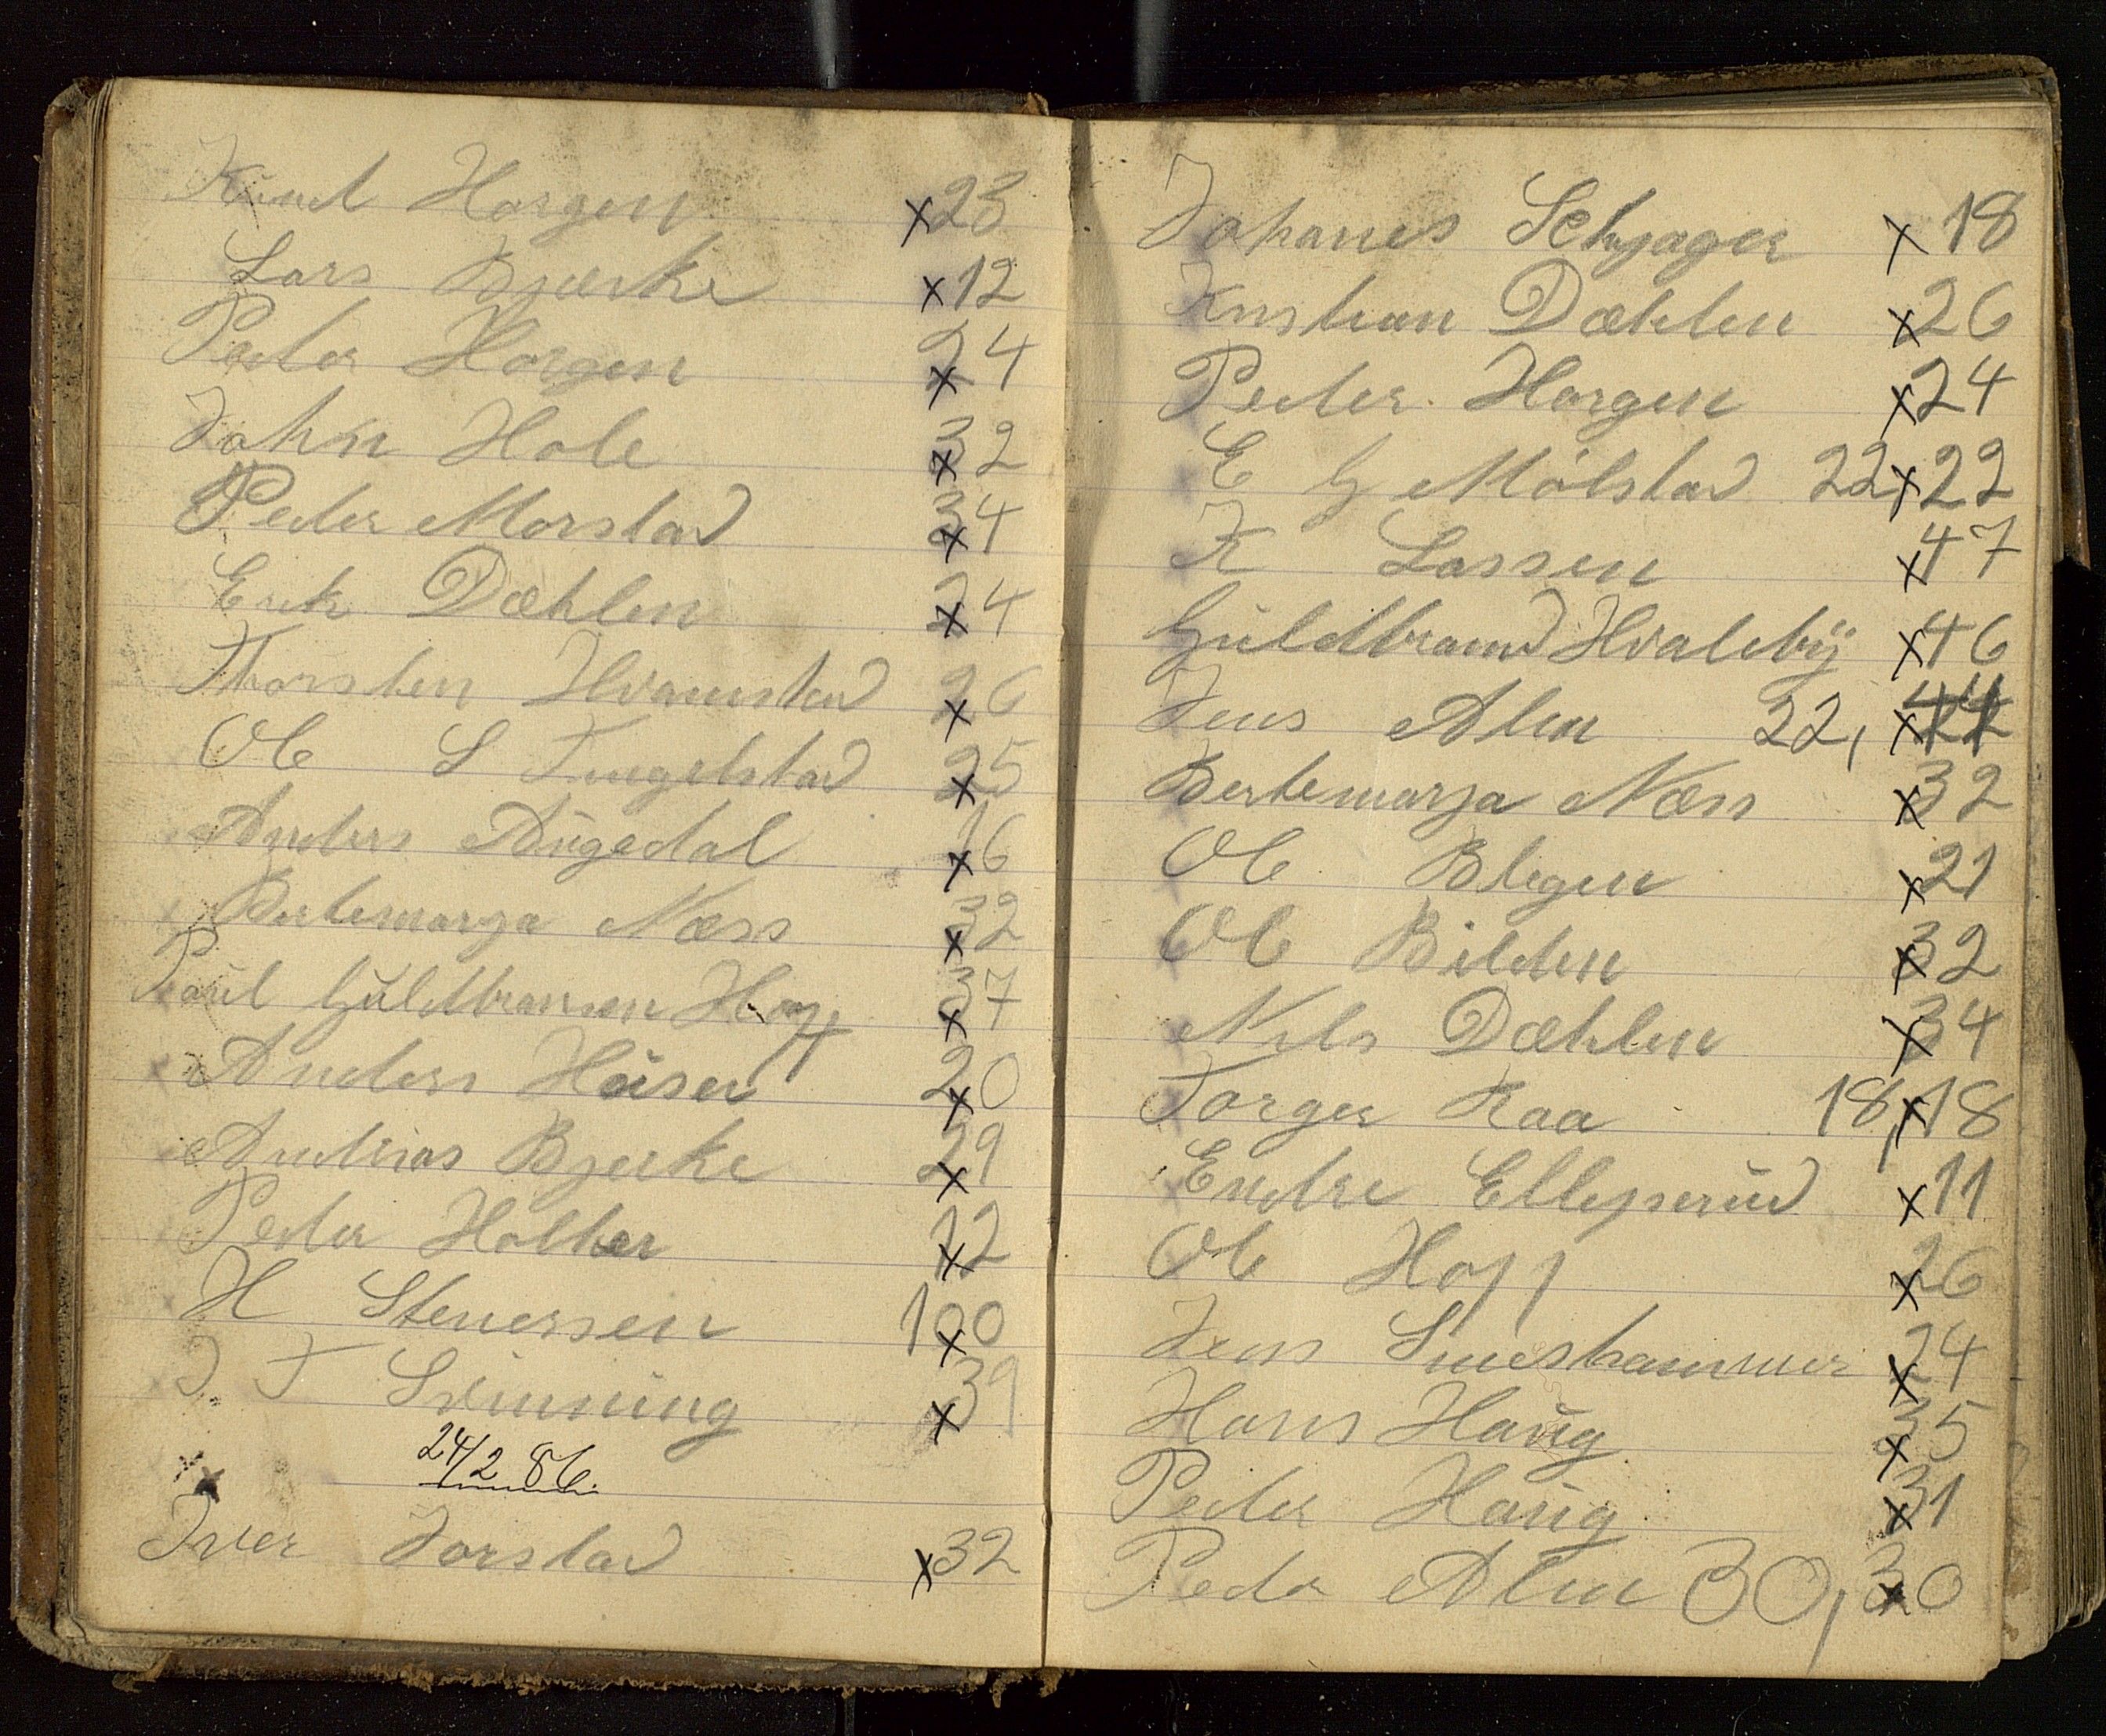 Knud Horgen x 23
Lars Bjærke x 12
Peder Horgen x 24
John Hole x 32
Peder Morstad x 34
Erik Dæhlen x 24
Thorsten Hvamstad x 26
Ole S Tingelstad x 25
Anders Augedal x 16
Bertemarja Næss x 32
Paul Guldbransen Hop x 37
Anders x 20
Andreas Bjerke x 29
Peder Holther x 12
H Stenersen x 100
J. T Svinning x 39
24/2 86.
Iver Jorstad x 32
Johanes Schjager x 18
Kristian Dæhlen x 26
Peder Horgen x 24
E G Mölstad 22, x 22
K Lassen x 47
Guldbrand Hvaleby x 46
Jens Alm 22, x 44
Bertemarja Næss x 32
Ole Blegen x 21
Ole Bilden x 32
Nils Dæhlen x 34
Torger Raa 18, x 18
Endre Elleserud x 11
Ole Hopp x 26
Jens Smeshammer x 24
Hans Haug x 35
Peder Haug x 31
Peder Alm 30, x 30